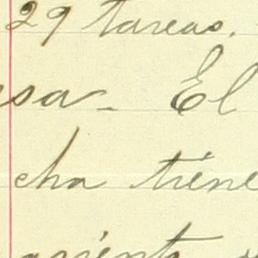 29 tareas.
sa. El
cha tiene